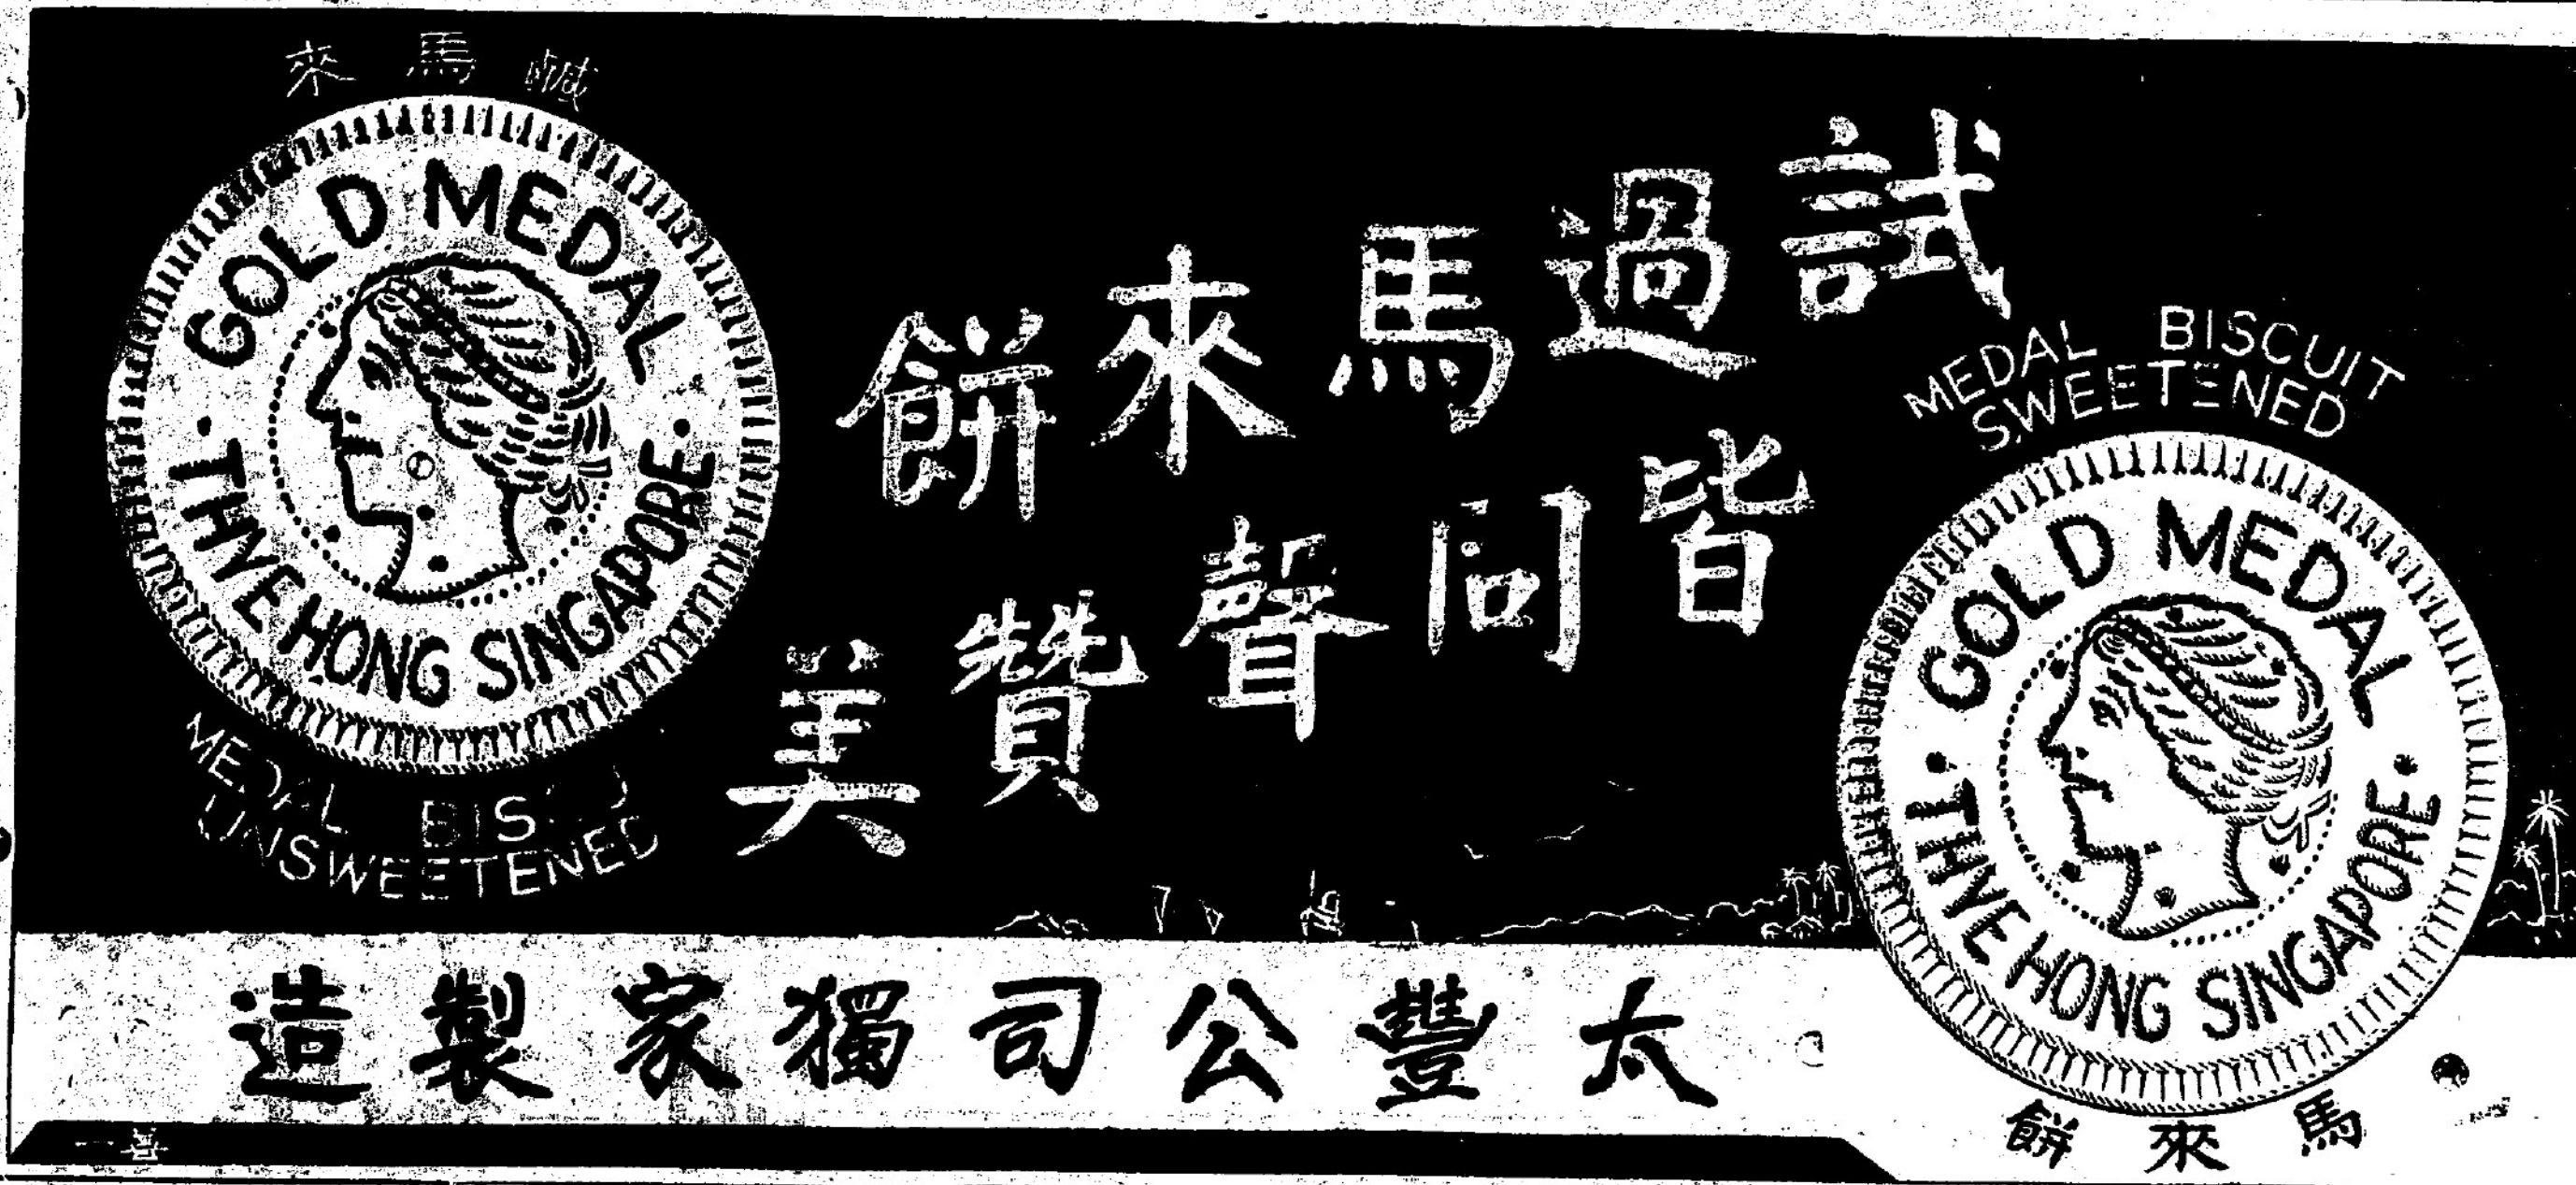 鹹馬來
GOLD MEDAL
THYE HONG SINGAPORE
MEDAL BIS
UNSWEETENED
試過馬來餅
皆同聲贊美
MEDAL BISCUIT
SWEETENED
GOLD MEDAL
THYE HONG SINGAPORE
馬來餅
太豐公司獨家製造